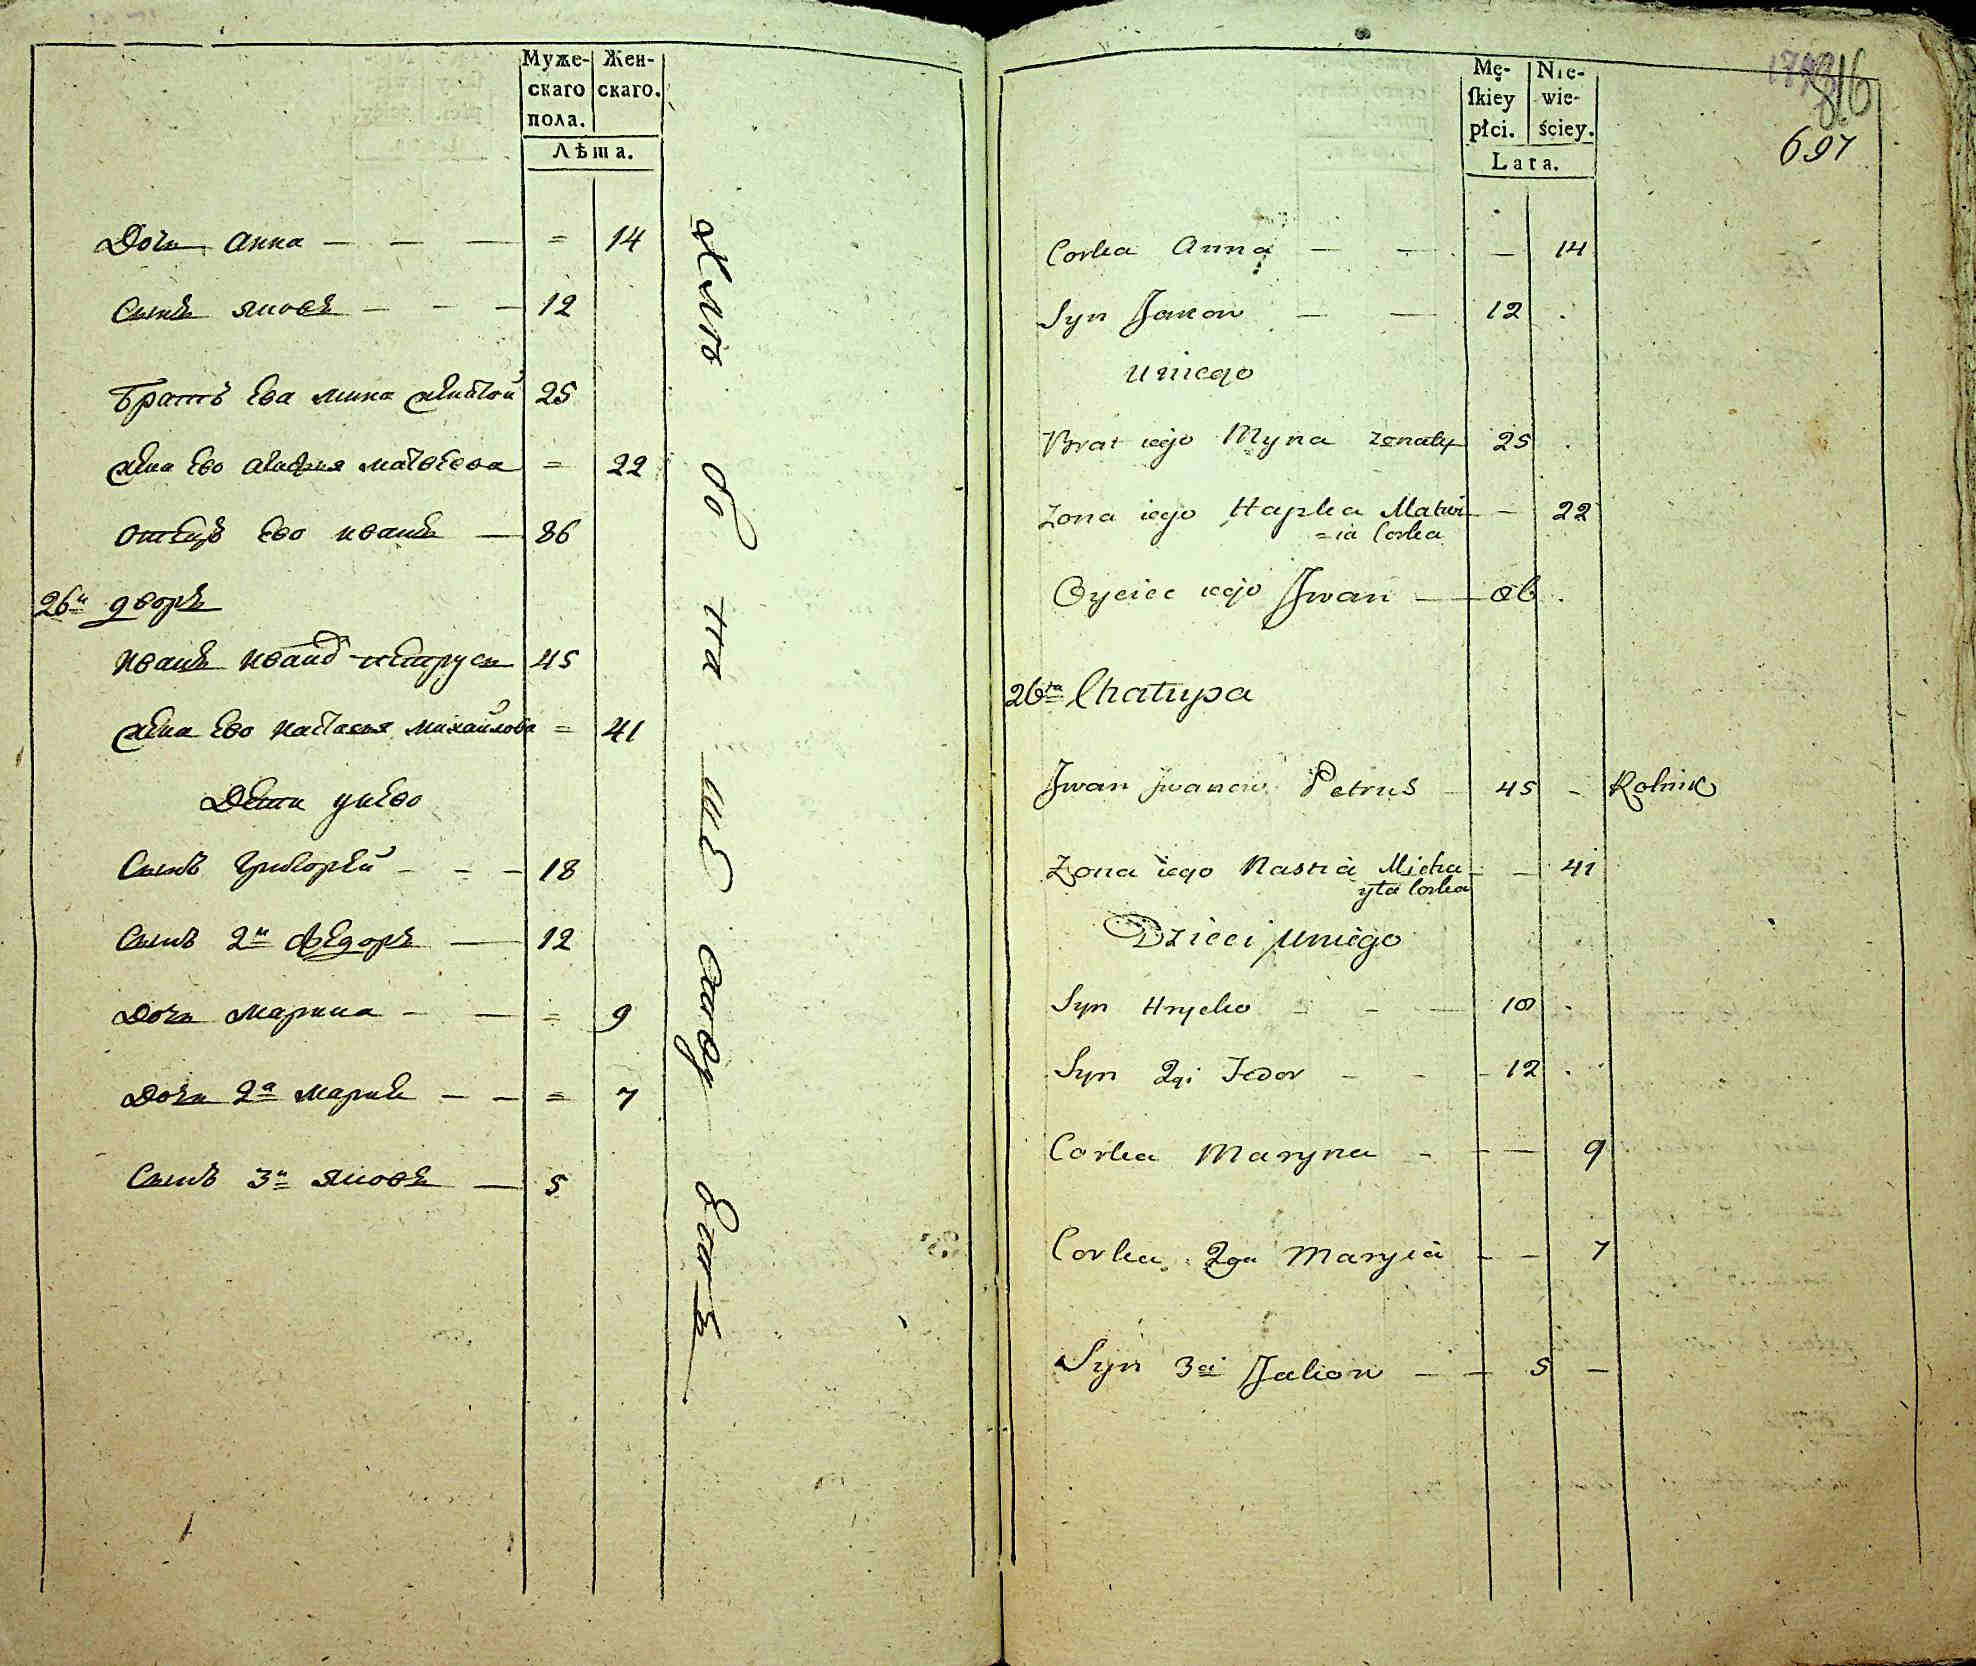 Муже-
скаго
пола.
Жен-
скаго.
Лѣта.
Дочь Анна — — — = 14
Сынъ Яковъ — — — 12
Братъ Ево Мина женатой 25
Жена Ево Агафья Матвѣева = 22
Отецъ Ево Иванъ — 86
26й дворъ
Иванъ Ивановъ Петрусь 45
Жена Ево Настасья Михайлова = 41
Дети унево
Сынъ Григорей — — — 18
Сынъ 2й Федоръ — 12
Дочь Марина — — = 9
Дочь 2я Марья — — = 7
Сынъ 3й Яковъ — 5
Хлѣ бо па шѣ
Mę-
ſkiey
płci.
Nie-
wie-
ściey.
Lata.
816
697
Corka Anna — — — 14
Syn Jakow — — 12 .
u niego
Brat iego Myna zonaty 25 .
Zona iego Hapka Matwi — 22
=ia Corka
Oyciec iego Jwan — 86 .
26ta Chałupa
Jwan Jwanow Petruś — 45 — Rolnik
Zona iego Nastia Micha — — 41
yła Corka
Dzieci uniego
Syn Hryćko — — — 18 .
Syn 2gi Fedor — — — 12 .
Corka Maryna — — — 9
Corka 2ga Maryia — — 7
Syn 3ci Jakow — — 5 —